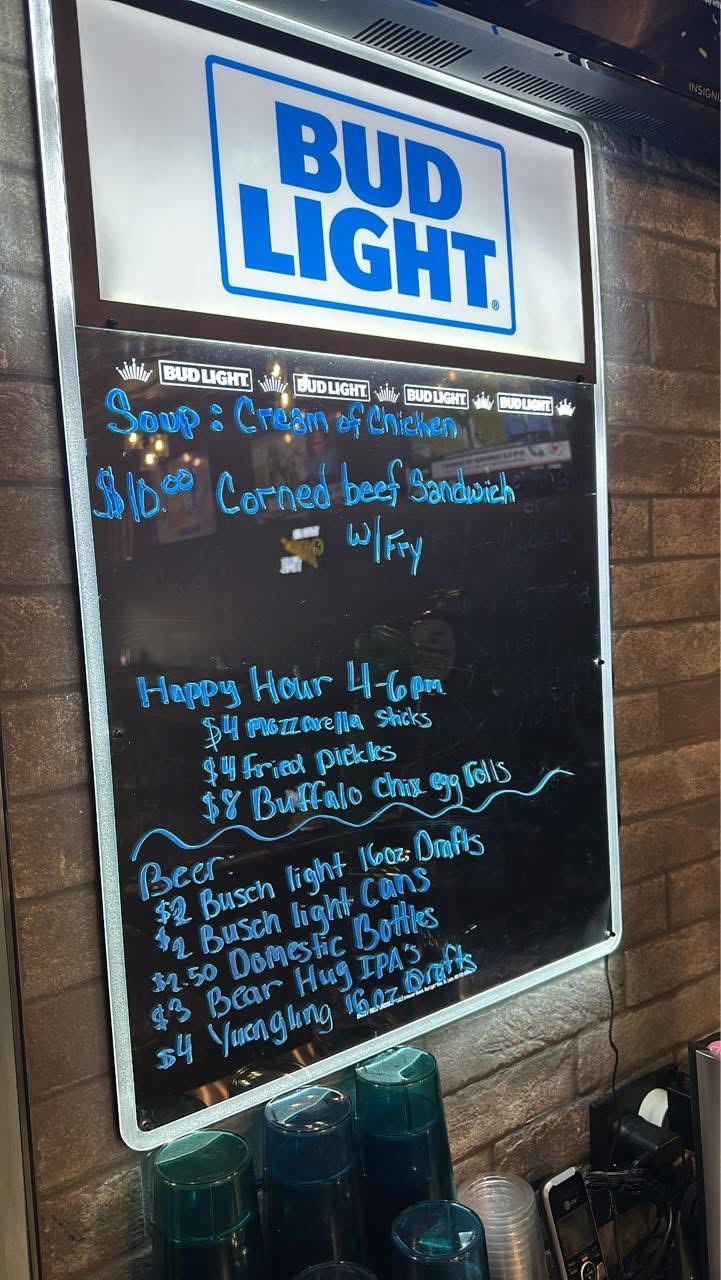 INSIGNI
BUD
LIGHT®
BUD LIGHT BUD LIGHT BUD LIGHT BUD LIGHT
Soup: Cream of Chicken
$10.00 Corned beef Sandwich
w/Fry
Happy Hour 4-6pm
$4 mozzarella sticks
$4 fried pickles
$8 Buffalo chix egg rolls
Beer:
$2 Busch light 16oz. Drafts
$2 Busch light Cans
$2.50 Domestic Bottles
$3 Bear Hug IPA's
$4 Yuengling 16oz Drafts